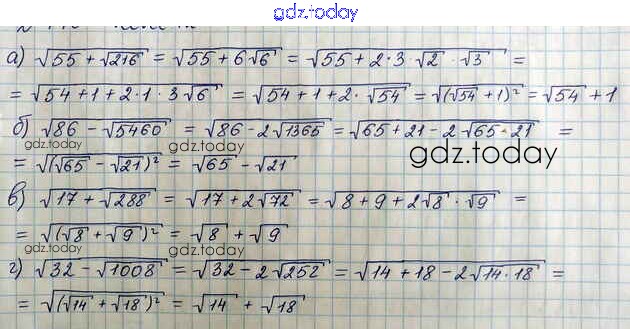 gdz.today
а) √(55 + √216) = √(55 + 6√6) = √(55 + 2·3·√2·√3) =
= √(54 + 1 + 2·1·3√6) = √(54 + 1 + 2·√54) = √((√54 + 1)²) = √54 + 1
б) √(86 − √5460) = √(86 − 2√1365) = √(65 + 21 − 2√(65·21)) =
gdz.today gdz.today
= √((√65 − √21)²) = √65 − √21
gdz.today
в) √(17 + √288) = √(17 + 2√72) = √(8 + 9 + 2√8·√9) =
= √((√8 + √9)²) = √8 + √9
gdz.today gdz.today
г) √(32 − √1008) = √(32 − 2√252) = √(14 + 18 − 2√(14·18)) =
= √((√14 + √18)²) = √14 + √18